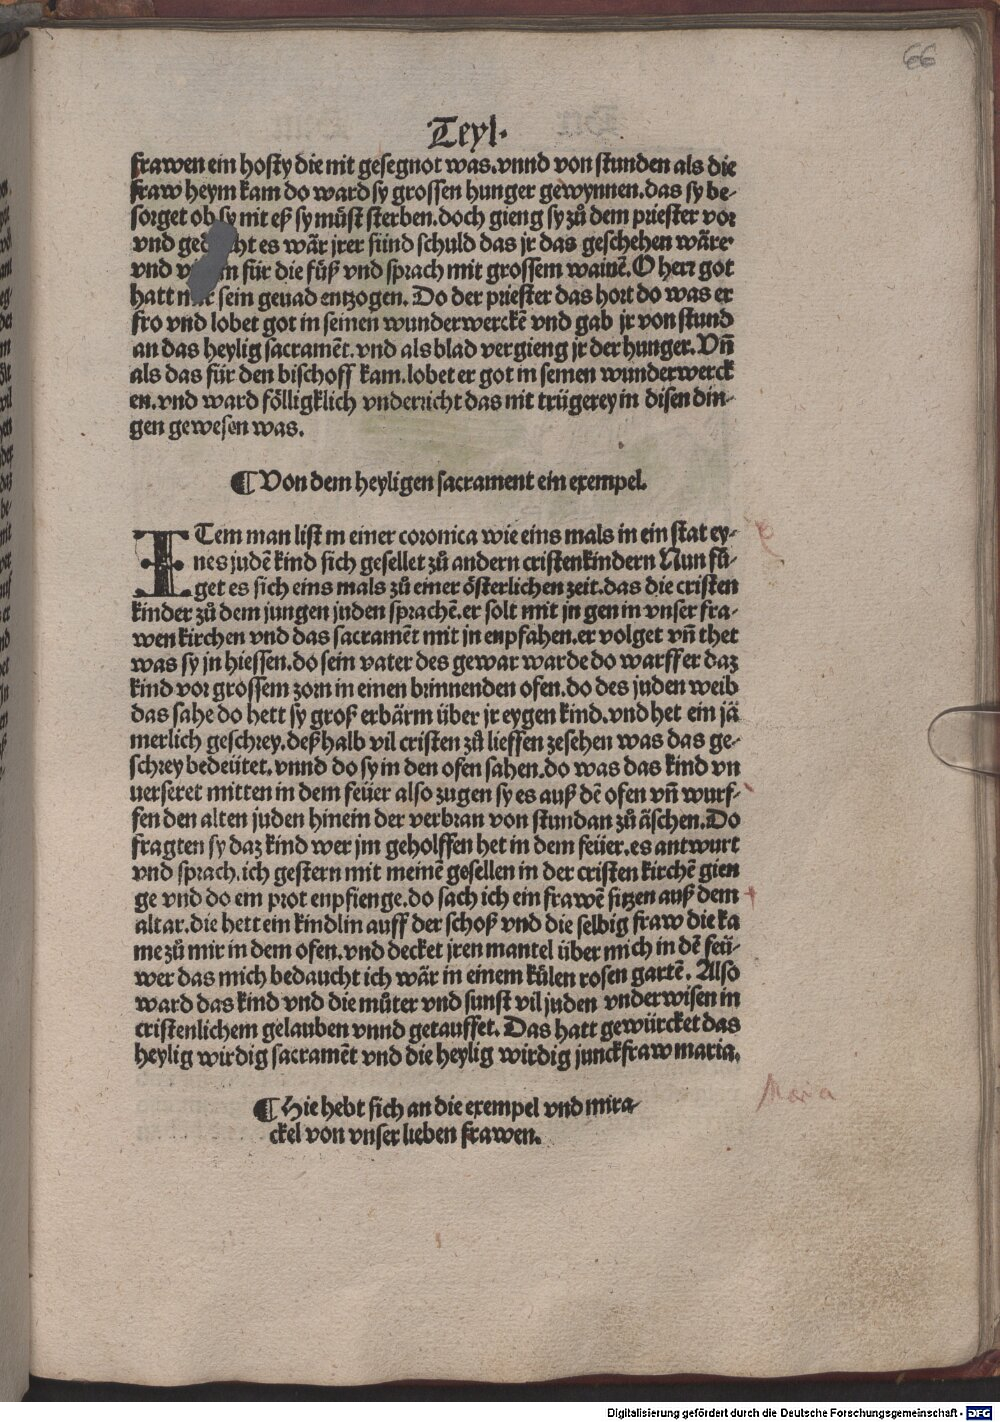 66
Teyl.
frawen ein hosty die nit gesegnot was.vnnd von stunden als die
fraw heym kam do ward sy grossen hunger gewynnen.das sy be-
sorget ob sy nit eß sy můst sterben.doch gieng sy zů dem priester vor
vnd es wår jrer sünd schuld das jr das geschehen wåre
vnd für die fůß vnd sprach mit grossem wainē.O herr got
hatt sein genad entzogen. Do der priester das hort do was er
fro vnd lobet got in seinen wunderwerckē vnd gab jr von stund
an das heylig sacramēt.vnd als blad vergieng jr der hunger.Vñ
als das für den bischoff kam.lobet er got in seinen wunderwerck
en.vnd ward fölligklich vnderricht das nit trügerey in disen din-
gen gewesen was.
¶ Von dem heyligen sacrament ein exempel.
ITem man list in einer coronica wie eins mals in ein stat ey-
nes judē kind sich gesellet zů andern cristenkindern Nun fů-
get es sich eins mals zů einer österlichen zeit.das die cristen
kinder zů dem jungen juden sprachē.er solt mit jn gen in vnser fra-
wen kirchen vnd das sacramēt mit jn enpfahen.er volget vñ thet
was sy jn hiessen.do sein vater des gewar warde do warff er daz
kind vor grossem zorn in einen brinnenden ofen.do des juden weib
das sahe do hett sy groß erbärm über jr eygen kind.vnd het ein jä
merlich geschrey.deßhalb vil cristen zů lieffen zesehen was das ge-
schrey bedeütet.vnnd do sy in den ofen sahen.do was das kind vn
uerseret mitten in dem feüer also zugen sy es auß dē ofen vñ wurf-
fen den alten juden hinein der verbran von stundan zů äschen.Do
fragten sy daz kind wer jm geholffen het in dem feüer.es antwurt
vnd sprach.ich gestern mit meinē gesellen in der cristen kirchē gien
ge vnd do ein prot enpfienge.do sach ich ein frawē sitzen auß dem
altar.die hett ein kindlin auff der schoß vnd die selbig fraw die ka
me zů mir in dem ofen.vnd decket jren mantel über mich in dē feü-
wer das mich bedaucht ich wår in einem külen rosen gartē. Also
ward das kind vnd die můter vnd sunst vil juden vnderwisen in
cristenlichem gelauben vnnd getauffet. Das hatt gewürcket das
heylig wirdig sacramēt vnd die heylig wirdig junckfraw maria.
Maria
¶ Hie hebt sich an die exempel vnd mira-
ckel von vnser lieben frawen.
Digitalisierung gefördert durch die Deutsche Forschungsgemeinschaft - DFG